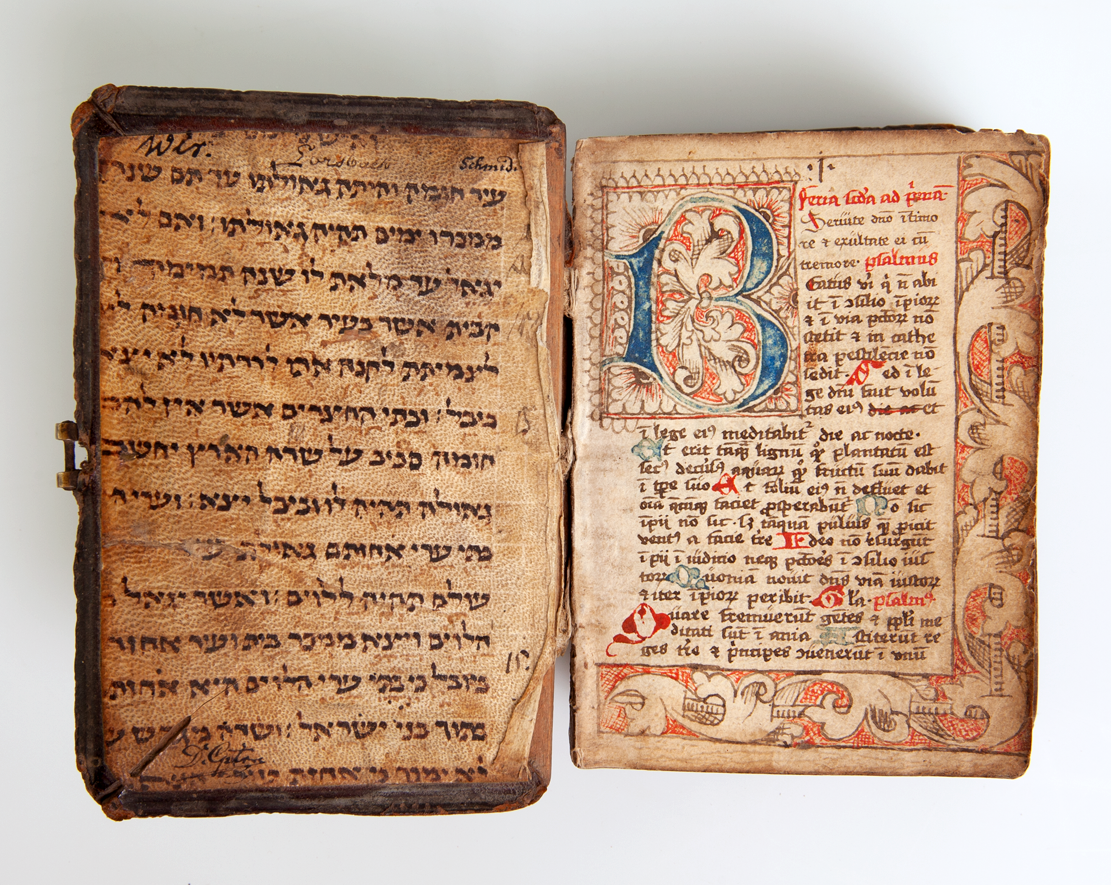 Wir.
Lorsbach
Schmid.
עיר חומה והיתה גאולתו עד תם
ממכרו ימים תהיה גאולתו ואם לא
יגאל עד מלאת לו שנה תמימה
הבית אשר בעיר אשר לא חומה
לצמיתת לקנה אתו לדרתיו לא יצא
ביבל ובתי החצרים אשר אין להם
חומה סביב על שדה הארץ יחשב
גאולה תהיה לו וביבל יצא וערי
בתי ערי אחזתם גאולת
עולם תהיה ללוים ואשר יגאל
הלוים ויצא ממכר בית ועיר
ביבל כי בתי ערי הלוים היא
בתוך בני ישראל ושדה מגרש
לא ימכר כי אחזת
15
B
Feria scda ad pmā
Seruite dno ī timo
re ⁊ exultate ei cū
tremore. psalmus
Eatus vir q̇ ñ abi
it ī ɔsilio īpiorꝝ
⁊ ī via pctorꝝ nō
stetit ⁊ in cathe
dra pestilēcie nō
sedit. Sed ī le
ge dnī fuit volū
tas eiꝰ die ac et
ī lege eiꝰ meditabit᷑ die ac nocte.
Et erit tāq̄ lignū qḋ plantatū est
secꝰ decursꝰ aquarꝝ qḋ fructū suū dabit
ī tpe suo Et foliū eiꝰ ñ defluet et
oīa quecūq̄ faciet ꝓsperabūt Nō sic
īpii nō sic. sꝫ tāquā puluis quē ꝓicit
ventꝰ a facie tre Ideo nō resurgūt
īpii ī iudicio neqꝫ pctores ī ɔsilio ius
torꝝ Quoniā nouit dns viā iustorꝝ
⁊ iter īpiorꝝ peribit. Gla. psalmꝰ
Quare fremuerūt gētes ⁊ ppli me
ditati sūt ī ania Astiterūt re
ges tre ⁊ prīcipes ɔuenerūt ī vnū